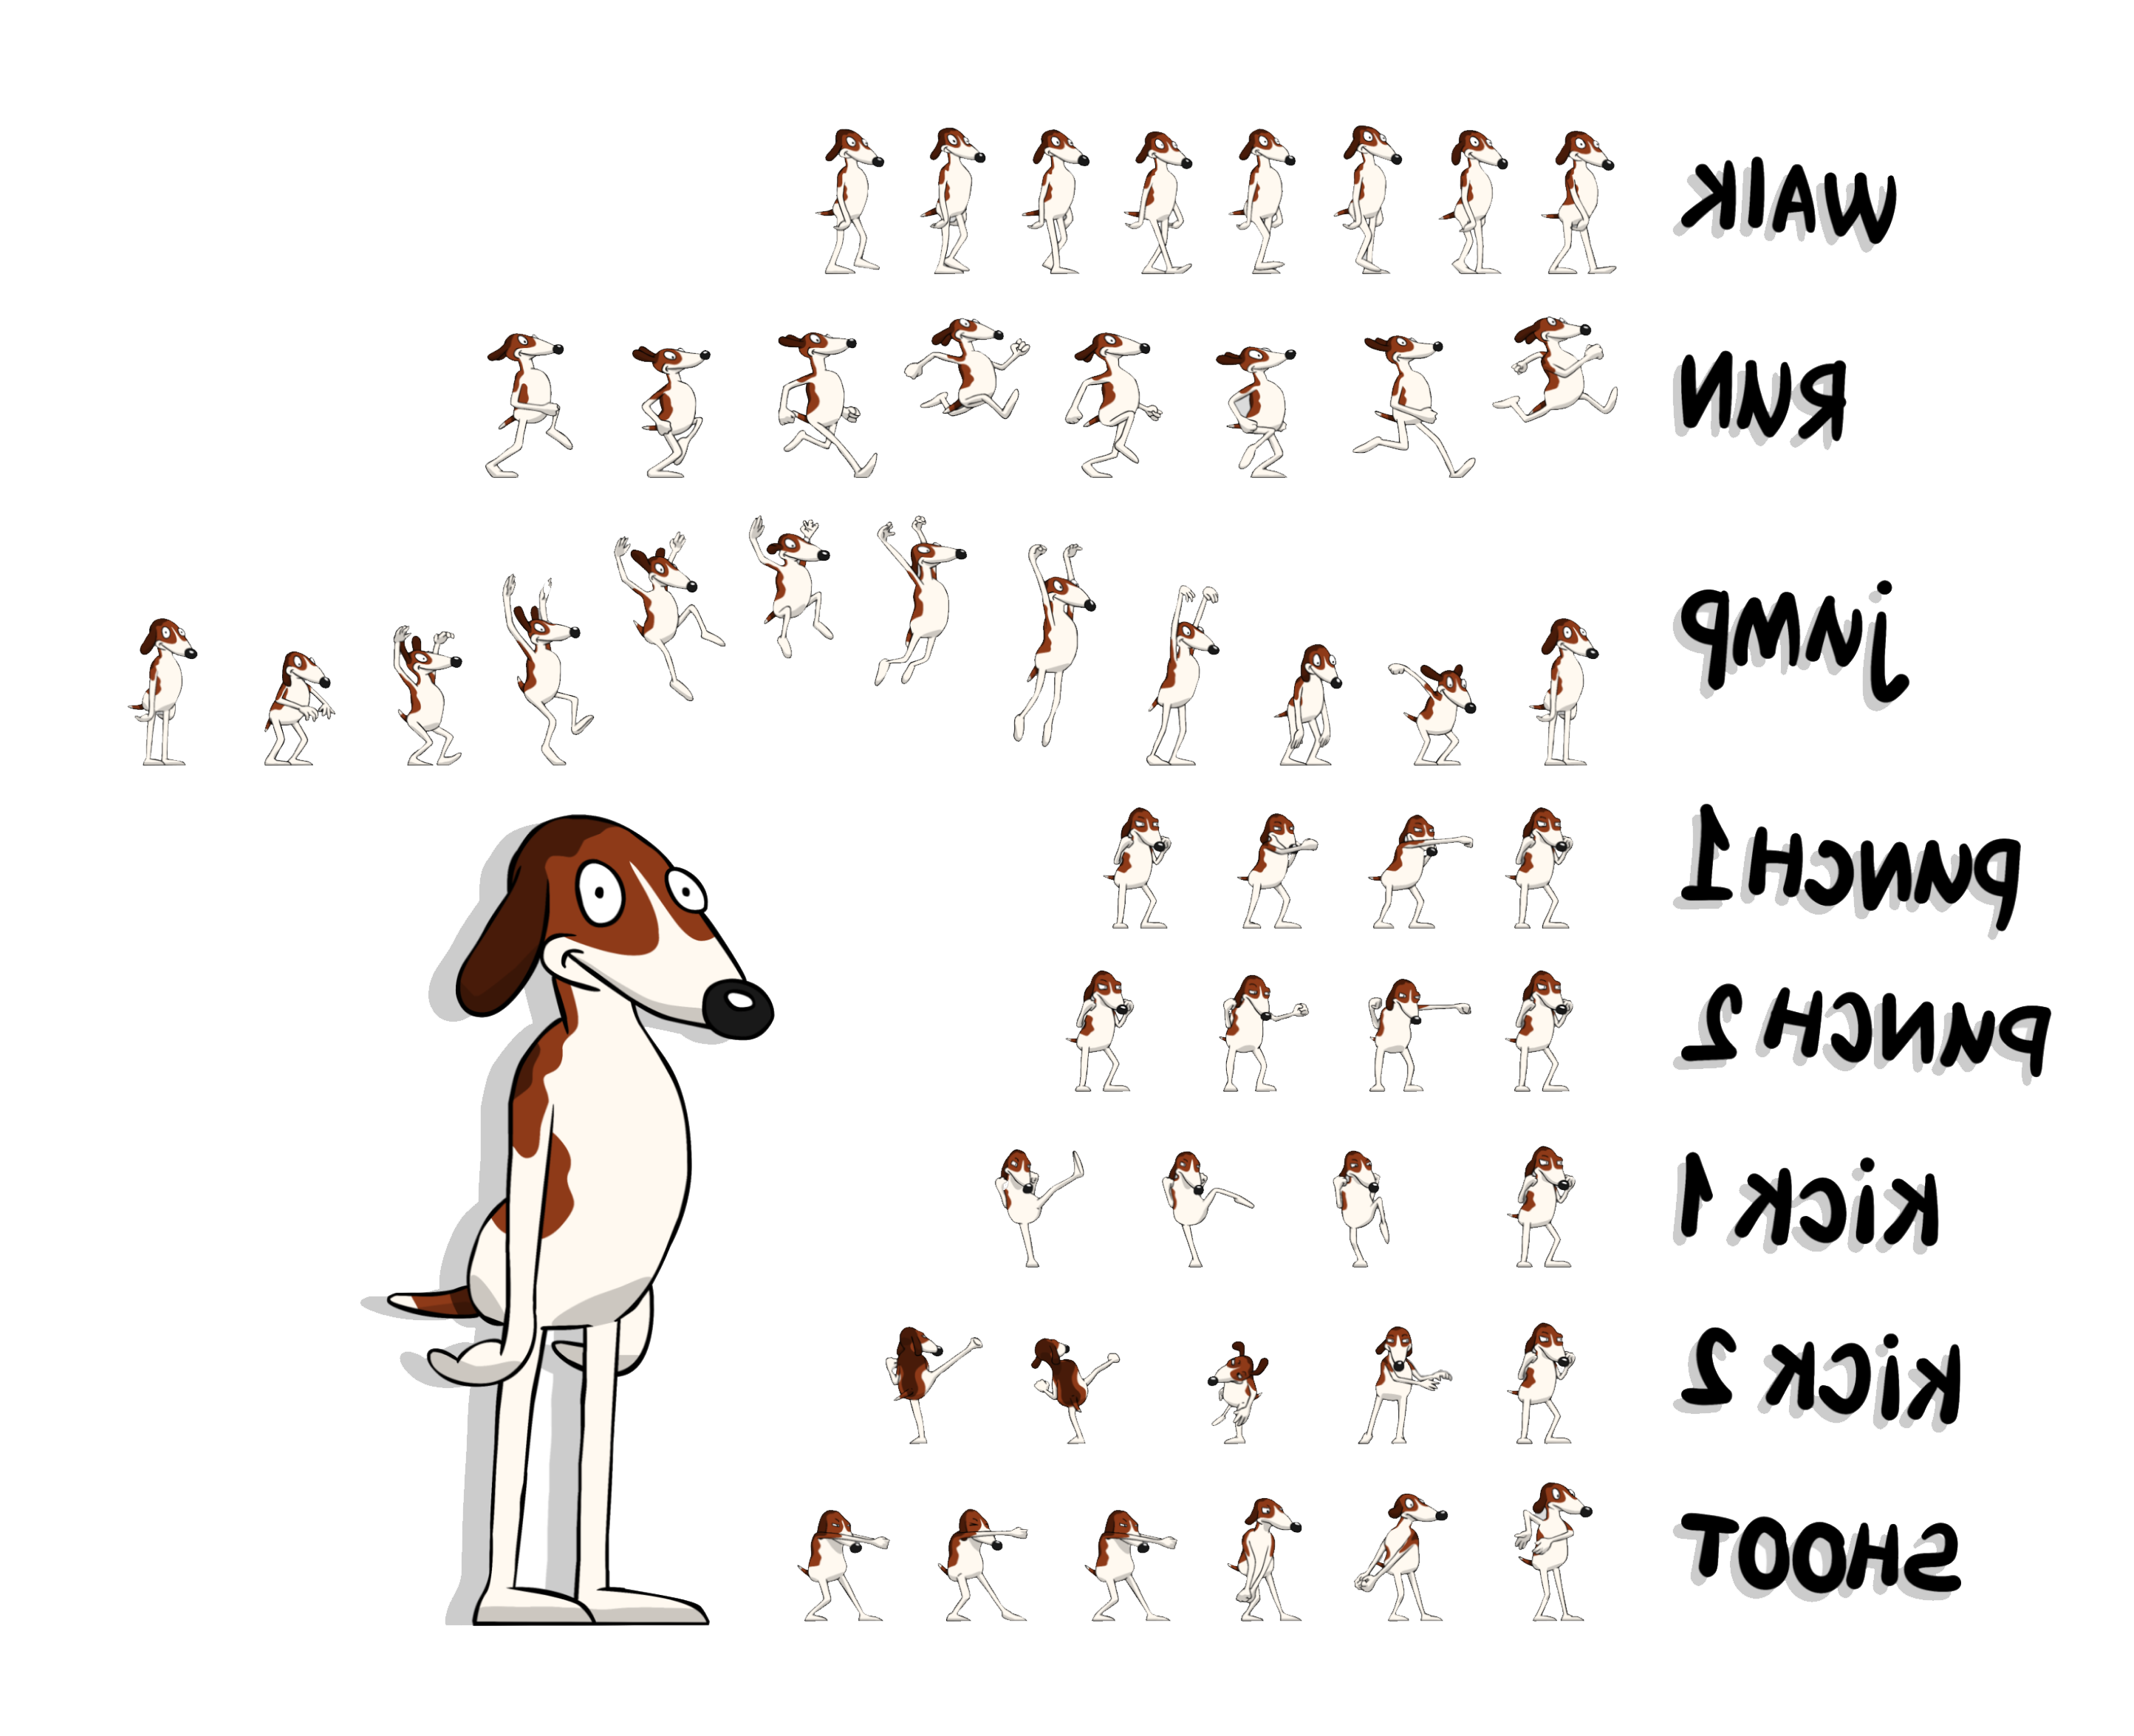 WAlK
RUN
jUMP
PUNCH1
PUNCH2
KiCK1
KiCK2
SHOOT